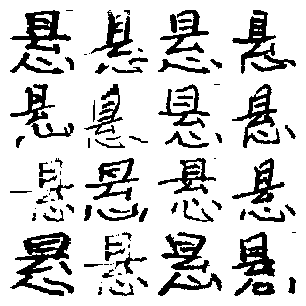 悬悬悬悬
悬悬悬悬
悬悬悬悬
悬悬悬